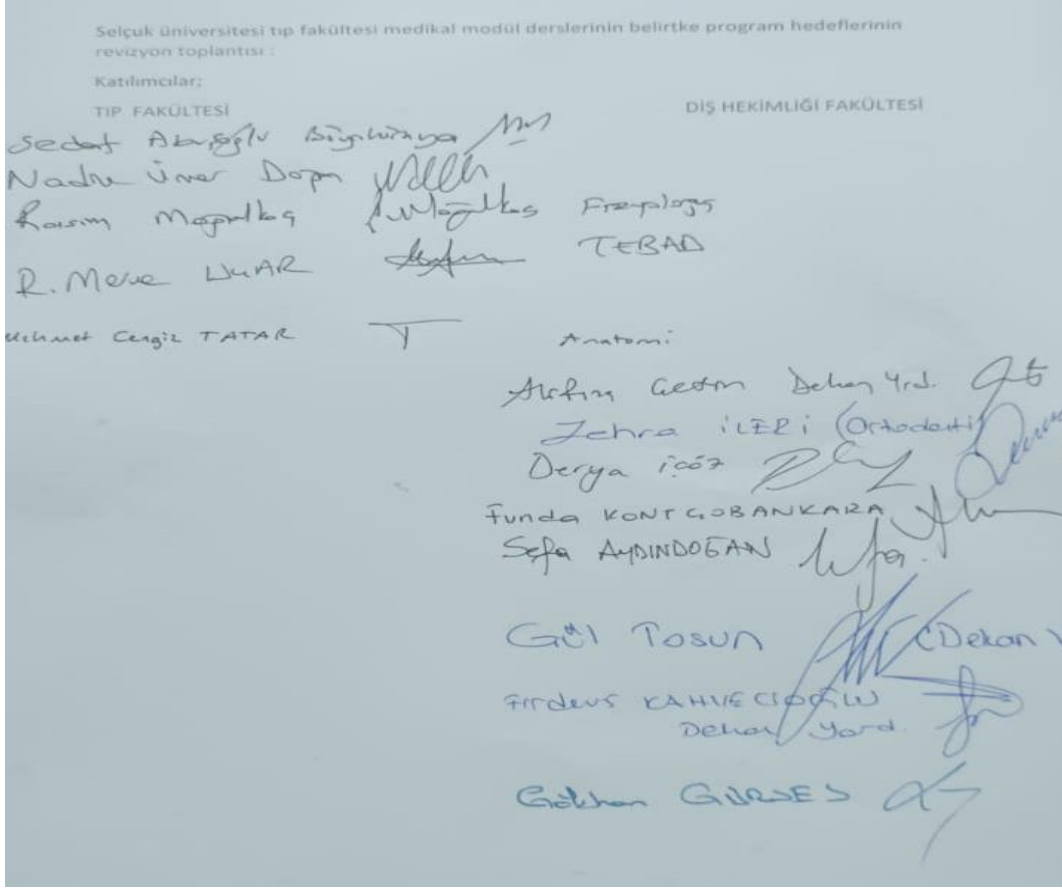 Selçuk üniversitesi tıp fakültesi medikal modül derslerinin belirtke program hedeflerinin
revizyon toplantısı :
Katılımcılar;
TIP FAKÜLTESİ
DİŞ HEKİMLİĞİ FAKÜLTESİ
Sedat
Ümer
Rasim
R. Merve UÇAR TEBAD
Mehmet Cengiz TATAR Anatomi
Dekan Yrd.
Zehra İLERİ (Ortodonti)
Derya içöz
Funda KONT ÇOBANKARA
Sefa AYDINDOĞAN
Gül Tosun (Dekan
Firdevs KAHVECİOĞLU
Dekan Yard.
Gökhan GÜRSES